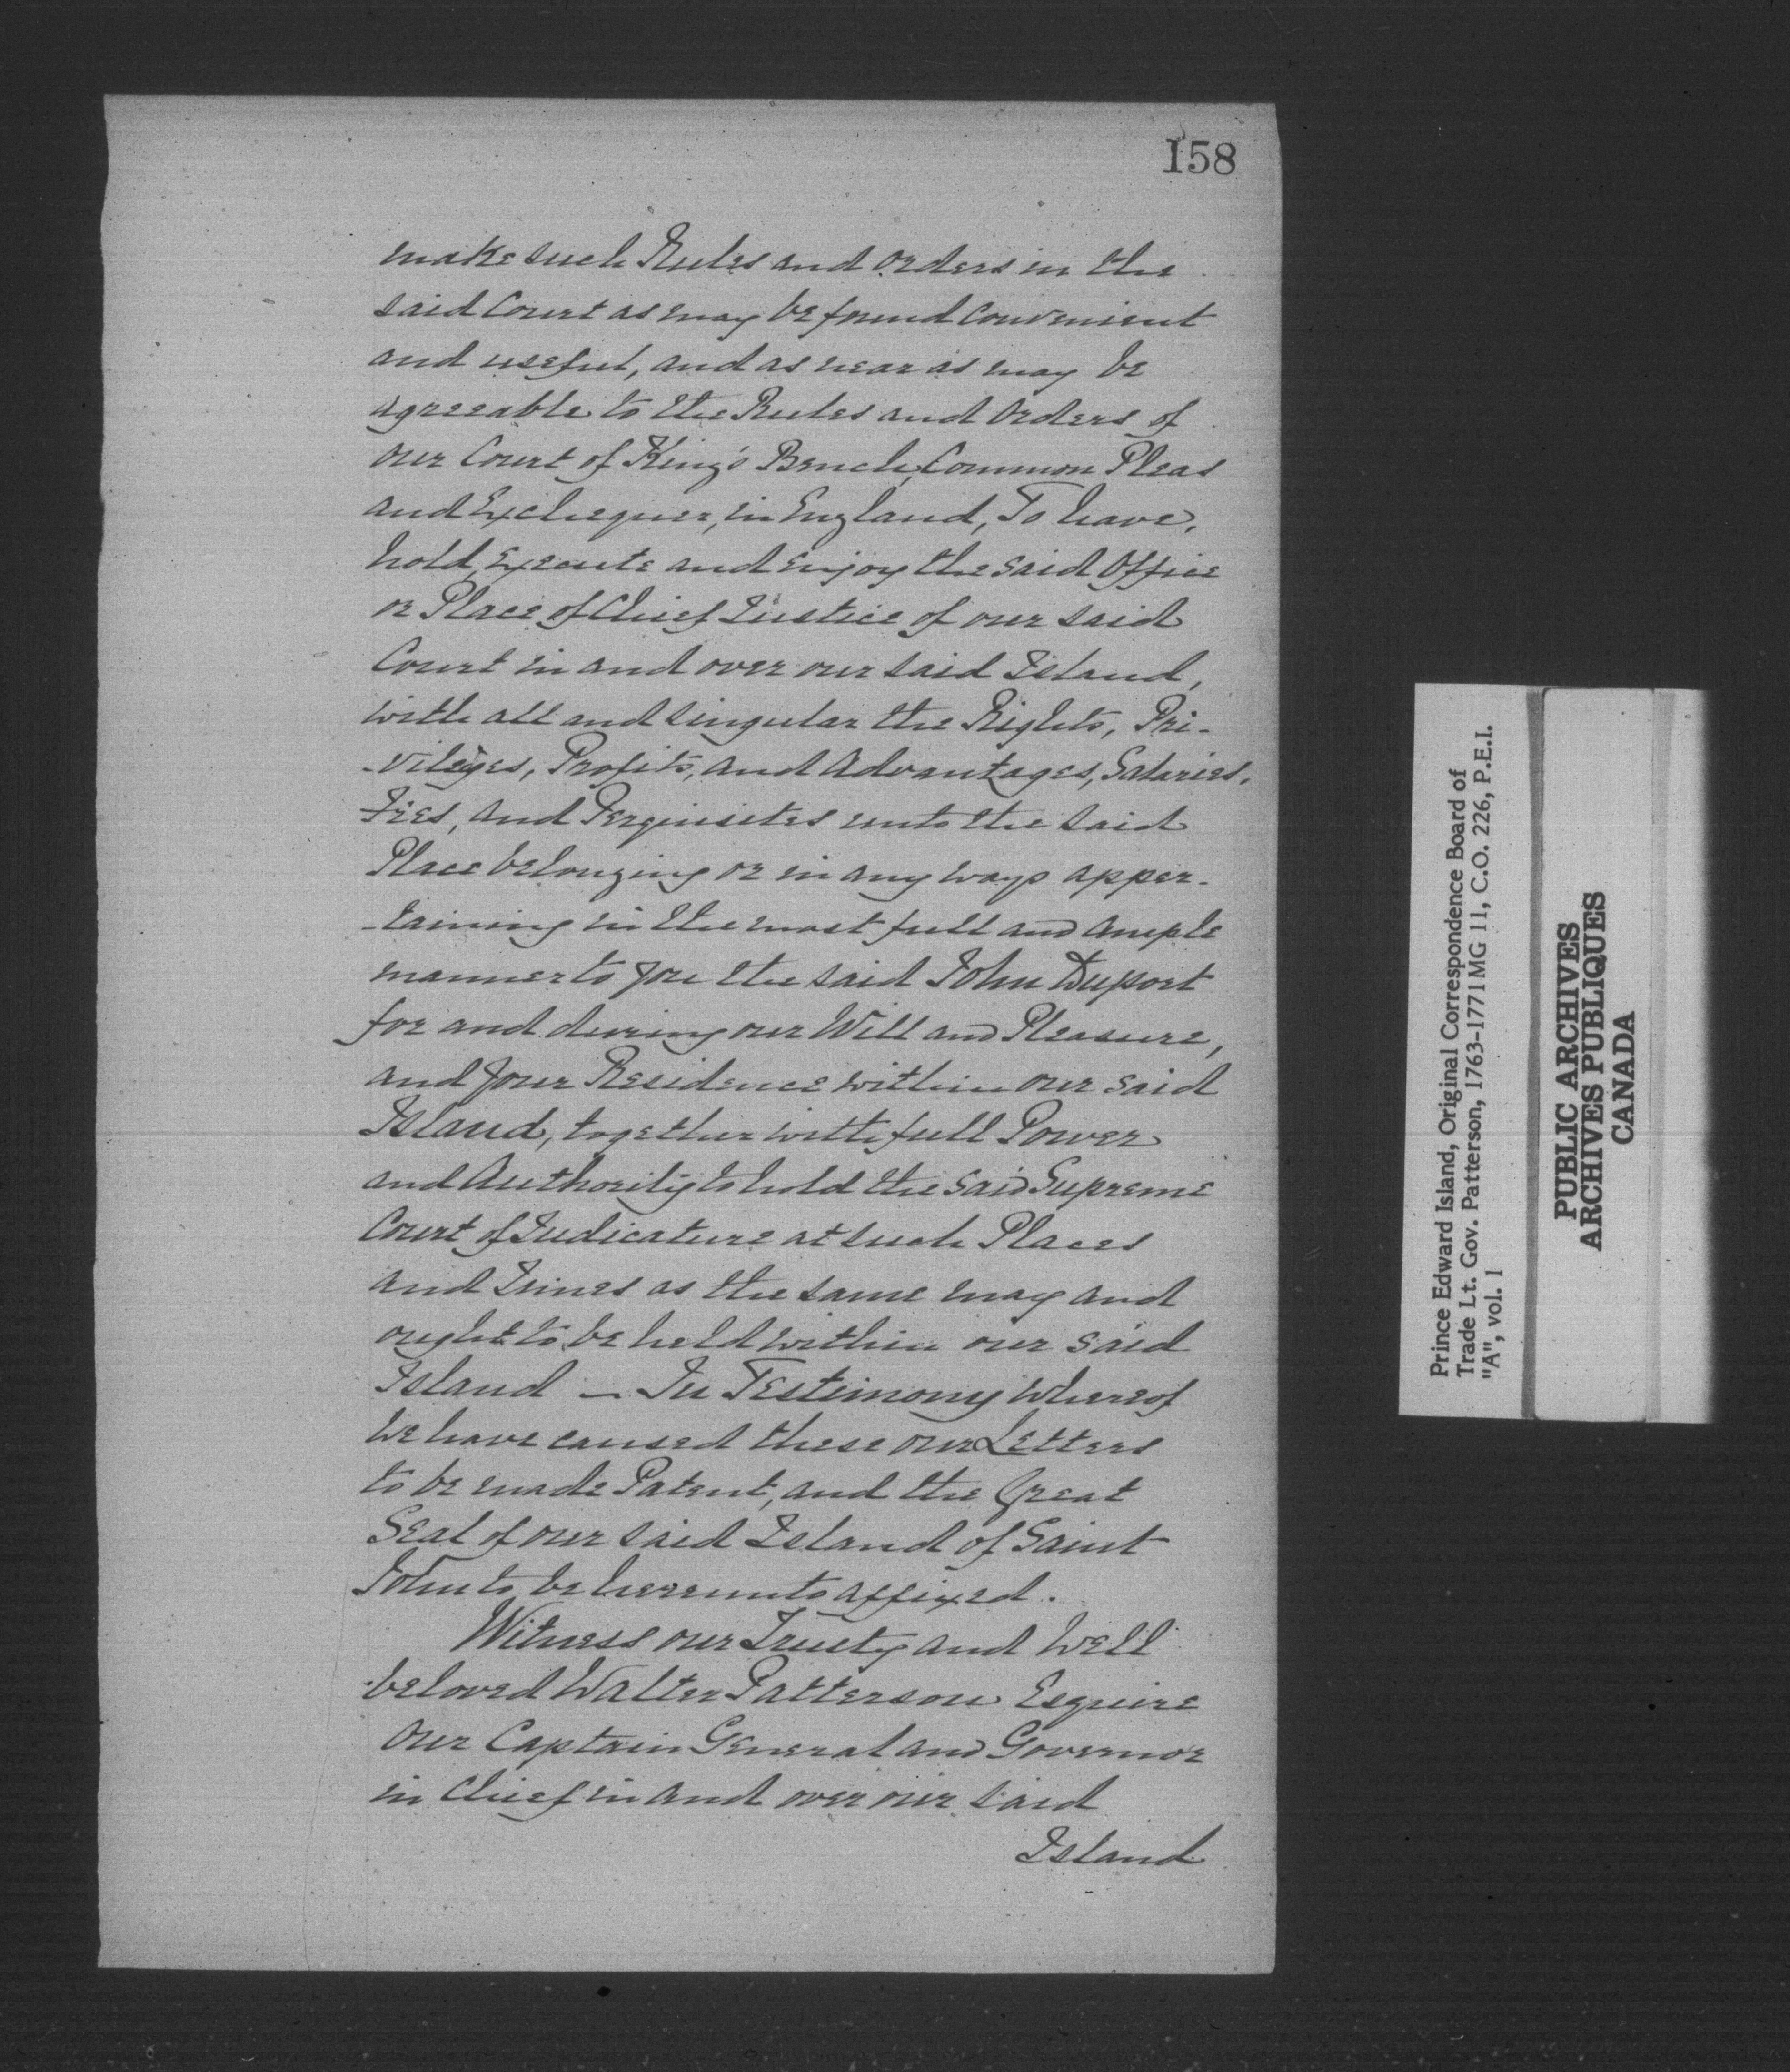 158
make such Rules and orders in the
said Court as may be found convenient
and useful, and as near as may be
agreeable to the Rules and Orders of
our Court of King's Bench, Common Pleas
and Exchequer, in England, To have,
hold, Execute and enjoy the said Office
or Place of Chief Justice of our said
Court in and over our said Island,
with all and singular the Rights, Pri-
-vileges, Profits, and Advantages, Salaries,
Fees, and Perquisites unto the said
Place belonging or in any ways apper-
-taining in the most full and ample
manner to you the said John Duport
for and during our Will and Pleasure,
and your Residence within our said
Island, together with full Power
and Authority to hold the said Supreme
Court of Judicature at such Places
and Times as the same may and
ought to be held within our said
Island — In Testimony whereof
We have caused these our Letters
to be made Patent, and the Great
Seal of our said Island of Saint
John to be hereunto affixed.
Witness our Trusty and Well
beloved Walter Patterson Esquire
Our Captain General and Governor
in Chief in and over our said
Island
Prince Edward Island, Original Correspondence Board of
Trade Lt. Gov. Patterson, 1763-1771MG 11, C.O. 226, P.E.I.
"A", vol. 1
PUBLIC ARCHIVES
ARCHIVES PUBLIQUES
CANADA